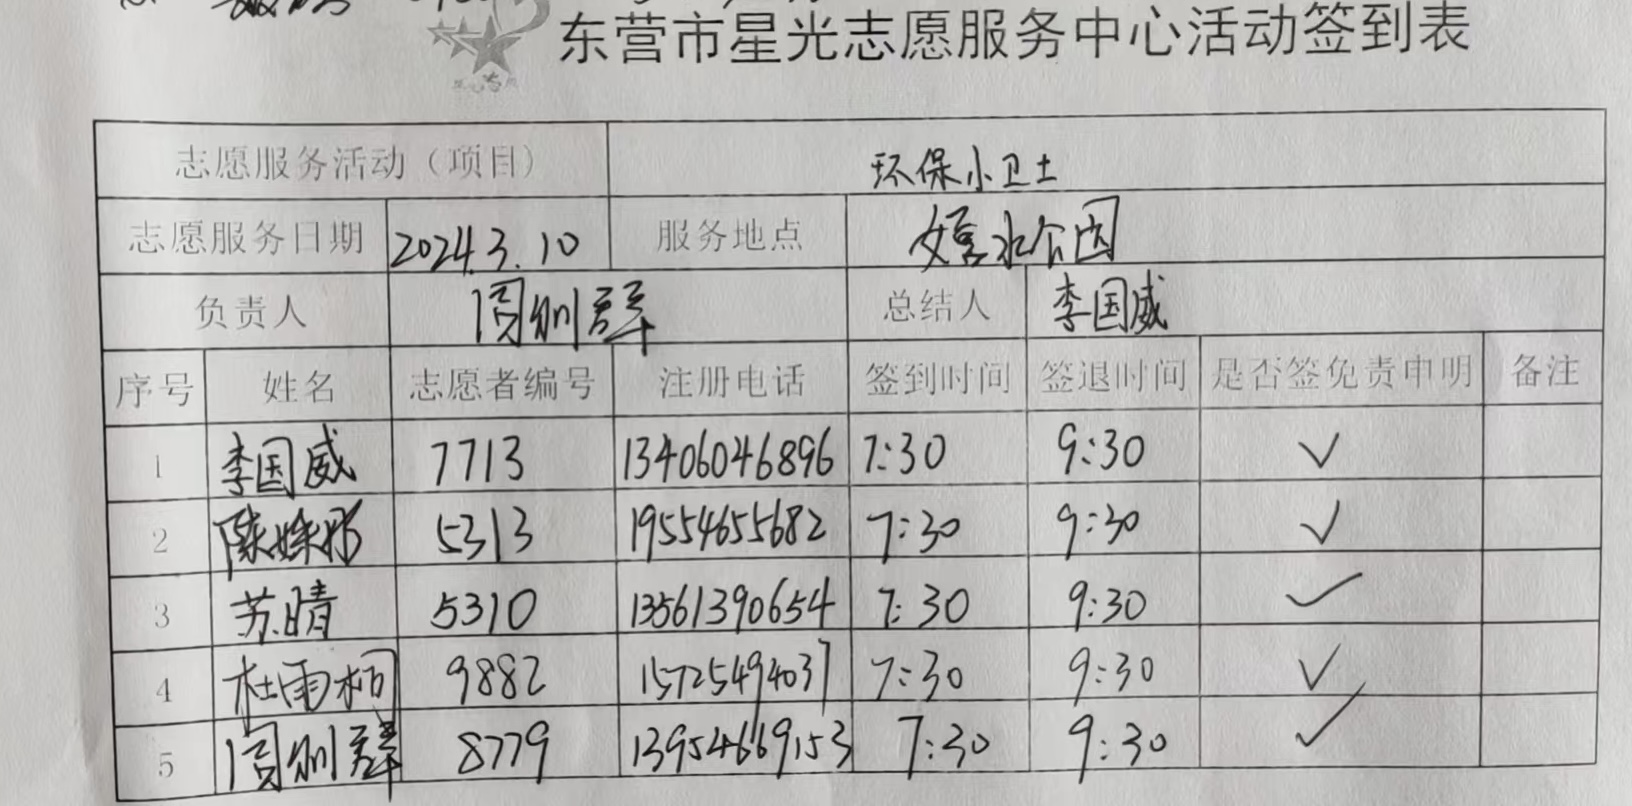 东营市星光志愿服务中心活动签到表
志愿服务活动（项目） 环保小卫士
志愿服务日期 2024.3.10 服务地点 嬉水公园
负责人 总结人 李国威
序号 姓名 志愿者编号 注册电话 签到时间 签退时间 是否签免责申明 备注
1 李国威 7713 13406046896 7:30 9:30 ✓
2 5313 19554655682 7:30 9:30 ✓
3 苏晴 5310 13561390654 7:30 9:30 ✓
4 杜雨桐 9882 15725494037 7:30 9:30 ✓
5 8779 13954669153 7:30 9:30 ✓